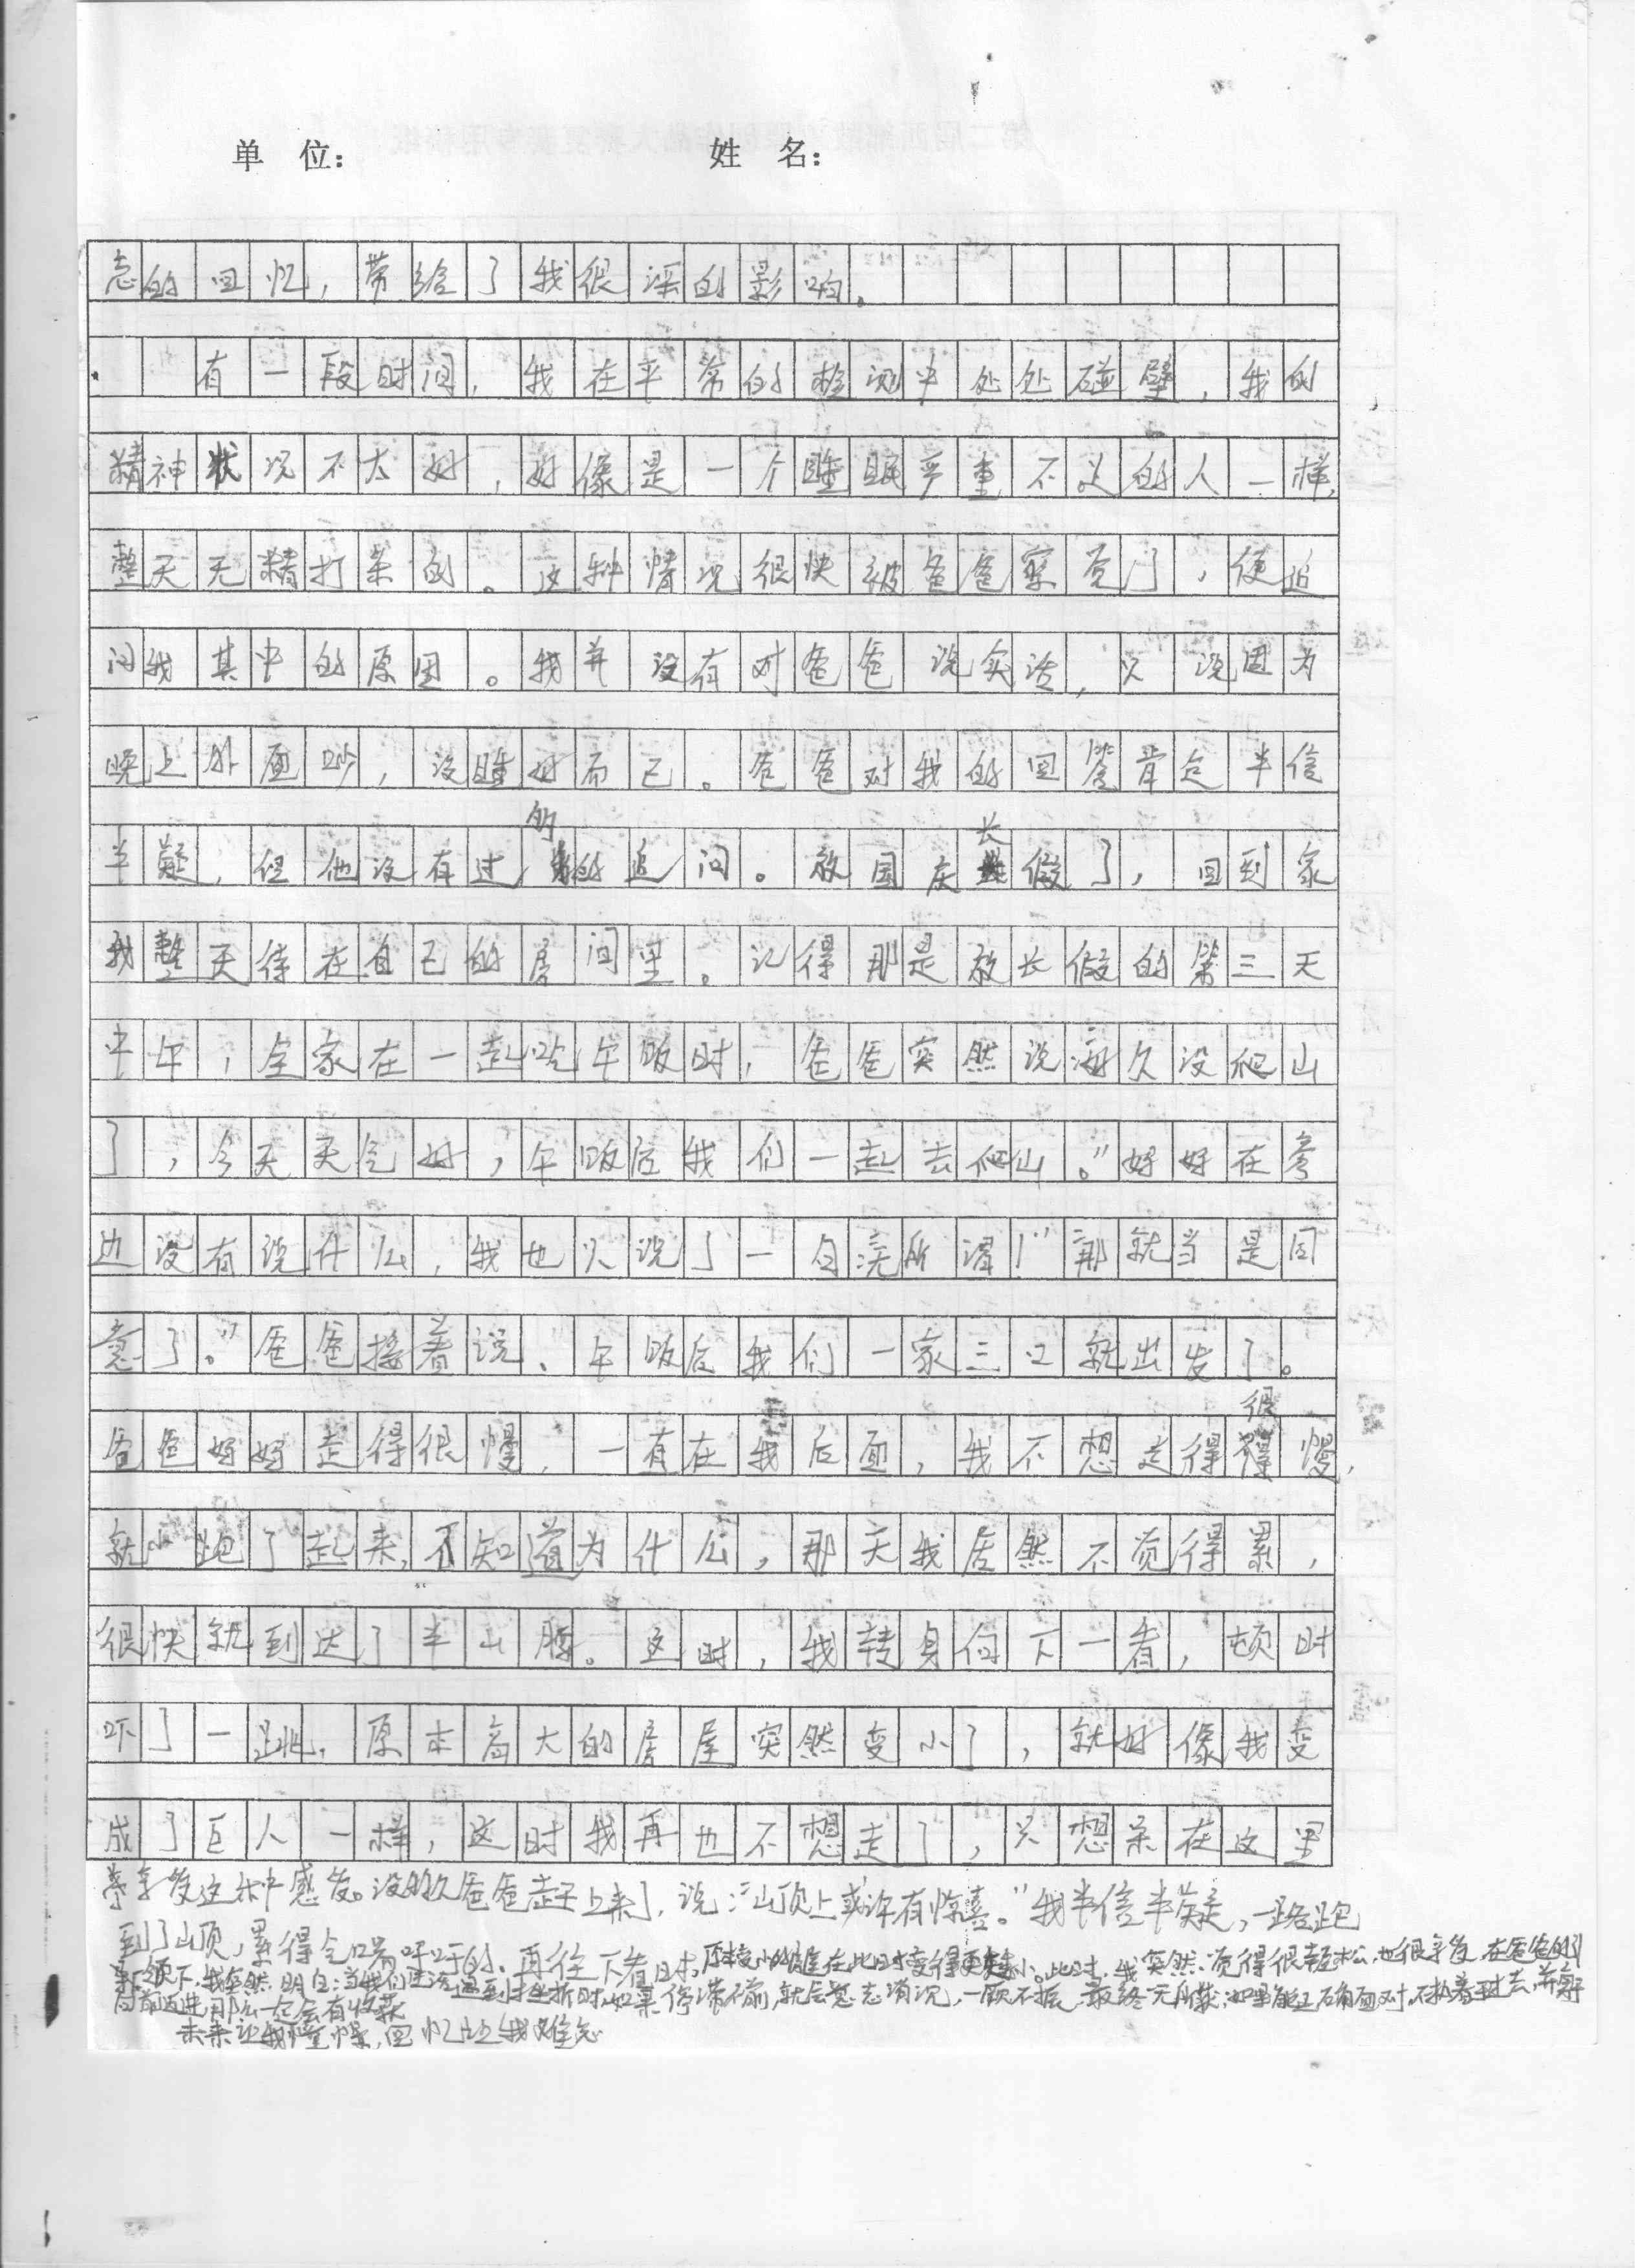 单 位： 姓 名：
忘的回忆，带给了我很深的影响。
有一段时间，我在平常的检测中处处碰壁，我的
精神状况不太好，好像是一个睡眠严重不足的人一样，
整天无精打采的。这种情况很快被爸爸察觉了，便追
问我其中的原因。我并没有对爸爸说实话，只说因为
晚上外面吵，没睡好而已。爸爸对我的回答肯定半信
半疑，但他没有过多的追问。放国庆长假了，回到家
我整天待在自己的房间里。记得那是放长假的第三天
中午，全家在一起吃午饭时，爸爸突然说好久没爬山
了，今天天气好，午饭后我们一起去爬山。”妈妈在旁
边没有说什么，我也只说了一句无所谓！“那就当是同
意了。”爸爸接着说、午饭后我们一家三口就出发了。
爸爸妈妈走得很慢，一直在我后面，我不想走得很慢，
就小跑了起来，不知道为什么，那天我居然不觉得累，
很快就到达了半山腰。这时，我转身向下一看，顿时
吓了一跳，原本高大的房屋突然变小了，就好像我变
成了巨人一样，这时我再也不想走了，只想呆在这里
享受这种感发。没多久爸爸走上来了，说：“山顶上或许有惊喜。”我半信半疑，一路跑
到了山顶，累得气喘吁吁的、再往下看时，原本变小的在此时变得更小。此时，我突然觉得很轻松，也很享受，在爸爸的引
领下，我突然明白：当我们生活遇到挫折时，如果停滞不前，就会意志消沉，一蹶不振，最终无所获；如果能正确面对，不执着过去，并努
向前迈进，那么一定会有收获
未来让我憧憬，回忆让我难忘